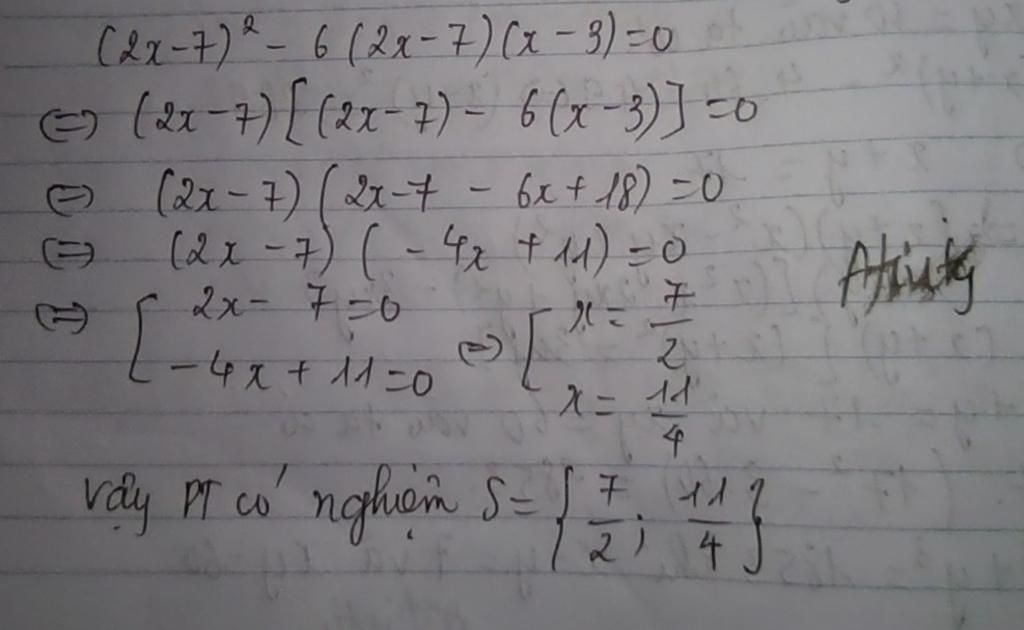 (2x-7)² - 6(2x-7)(x-3)=0
⇔ (2x-7)[(2x-7) - 6(x-3)]=0
⇔ (2x-7)(2x-7 - 6x+18)=0
⇔ (2x-7)(-4x+11)=0
⇔ [ 2x-7=0 ⇔ [ x=7/2
-4x+11=0 x=11/4
Vậy PT có nghiệm S={7/2; 11/4}